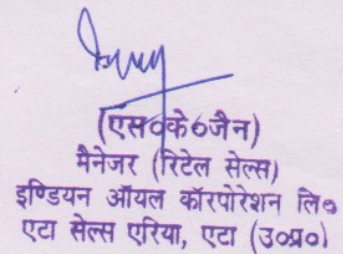 (एस०के०जैन)
मैनेजर (रिटेल सेल्स)
इण्डियन ऑयल कॉरपोरेशन लि०
एटा सेल्स एरिया, एटा (उ०प्र०)